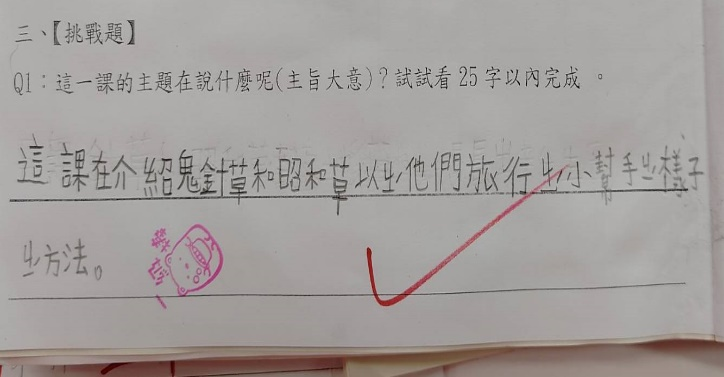 三、【挑戰題】
Q1：這一課的主題在說什麼呢(主旨大意)？試試看 25 字以內完成 。
這課在介紹鬼針草和昭和草以ㄓ他們旅行ㄓ小幫手ㄓ樣子
ㄓ方法。
一級棒